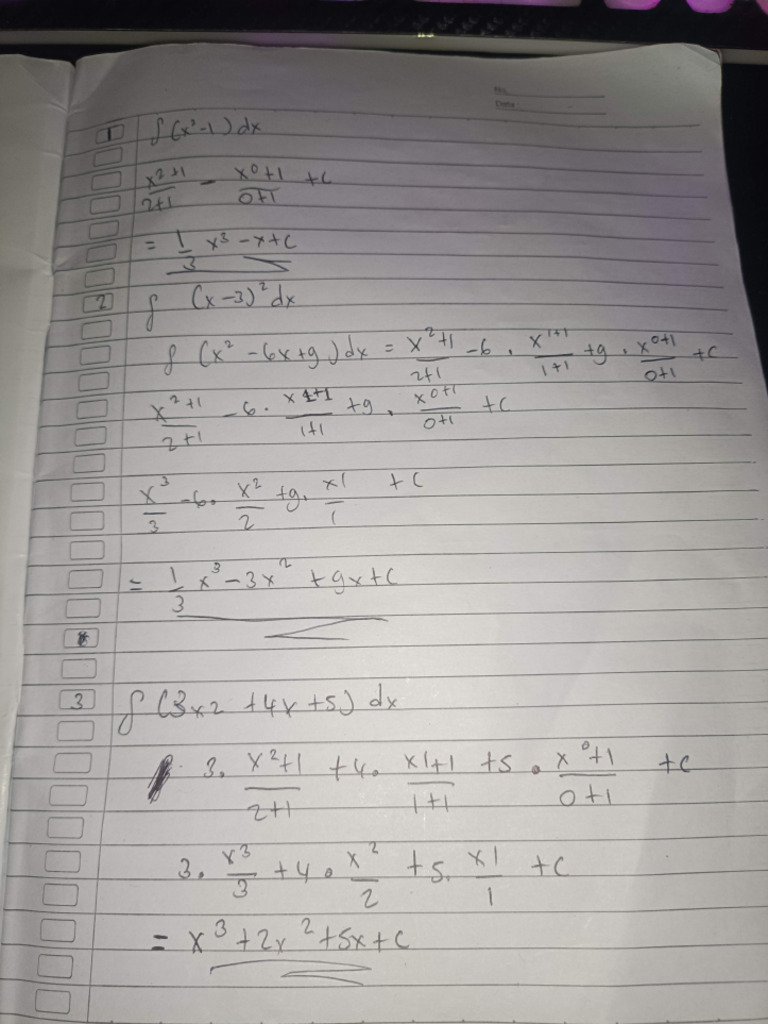 No.
Date
1 ∫(x²-1) dx
x²⁺¹/2+1 - x⁰⁺¹/0+1 + c
= 1/3 x³ - x + c
2 ∫ (x-3)² dx
∫ (x² - 6x + 9) dx = x²⁺¹/2+1 - 6 . x¹⁺¹/1+1 + 9 . x⁰⁺¹/0+1 + c
x²⁺¹/2+1 - 6 . x¹⁺¹/1+1 + 9 . x⁰⁺¹/0+1 + c
x³/3 - 6 . x²/2 + 9 . x1/1 + c
= 1/3 x³ - 3x² + 9x + c
3 ∫ (3x2 + 4x + 5) dx
3 . x²⁺¹/2+1 + 4 . x1+1/1+1 + 5 . x⁰⁺¹/0+1 + c
3 . x³/3 + 4 . x²/2 + 5 . x1/1 + c
= x³ + 2x² + 5x + c